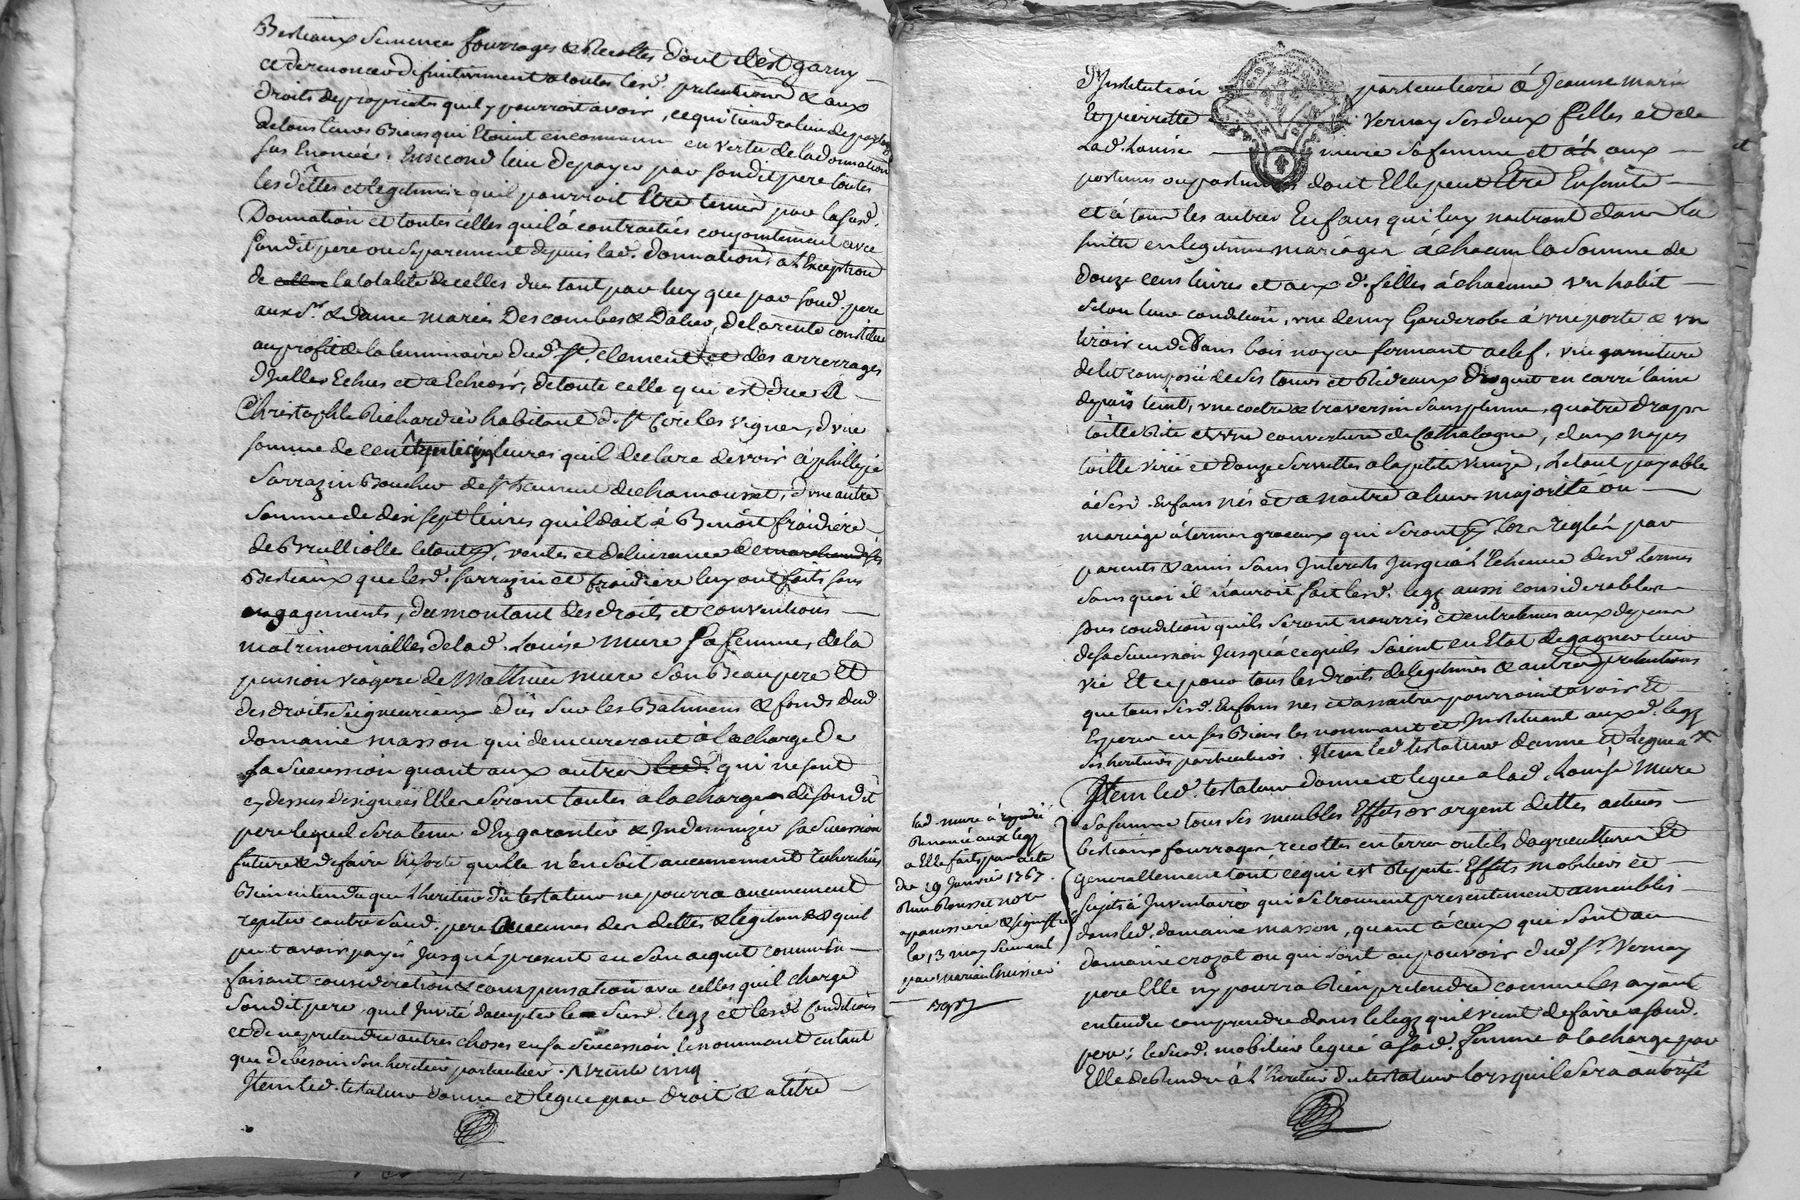 Bestiaux semences fourrages & Recoltes dont il est garny
et de renoncer definitivement a toutes lesd. pretentions & aux
droits de proprietés qu'il y pourroit avoir, ce qui tiendra lieu de partage
de tous leurs Biens qui Etoient en commun en vertu de la donnation
sus Enoncée, En second lieu de payer par sondit pere toutes
les dettes et legitimes qu'il pourroit Etre tenu par lasusd.
Donnation et toutes celles qu'il à contractées conjointement avec
sondit pere ou separement depuis lad. donnation, a l'Exception
de celles la totalité de celles dues tant par luy que par sond. pere
aux Sr. & dame mariés Descombes & Dalier, de la rente constituée
au profit de la luminaire dud. St. Clement et des arrerages
d'icelles Echus et a Echeoir, de toute celle qui est due à
Christophle Richard habitant de St. Cir les vignes, d'une
somme de cent trente cinq livres qu'il declare devoir à philippe
Sarrazin Boucher de St Laurent de chamousset, d'une autre
somme de dix sept livres qu'il doit à Benoit froidiere
de Brulliolle le tout pr. ventes et delivrances de marchandises
Bestiaux que lesd. Sarrazin et froidiere luy ont faits sans
engagements, du montant des droits et conventions
matrimonialles de lad. Louise mure sa femme, de la
pension viagere de Mathieu mure son Beaupere et
des droits seigneuriaux dûs sur les Batimens & fonds dud
domaine masson qui demeureront à la charge de
sa succession quant aux autres lesd. qui ne sont
cy dessus designées Elles seront toutes a la charge de sondit
pere lequel sera tenu d'En garantir & Indemnizer sa succession
future & de faire En sorte qu'elle n'En soit aucunement recherchée
Bien entendu que l'heritier du testateur ne pourra aucunement
repeter contre sond. pere aucunes des dettes & legitimes qu'il
peut avoir payé jusqu'à present en son acquit commun
faisant consideration & compensation avec celles qu'il charge
sondit pere, qu'il Invite d'accepter le susd. legz et lesd. Conditions
et de ne pretendre autres choses en sa succession, le nommant en tant
que de besoin son heritier particulier. trente cinq
Item led. testateur donne et legue par droit & a titre
D'Institution particuliere à Jeanne Marie
Et pierrette Vernay ses deux filles et de
Lad. Louise mure sa femme et aux
postumes ou postumes dont Elle peut Etre Enceinte
et à tous les autres Enfans qui luy naitront dans la
suitte en legitime mariage, à chacun la somme de
douze cens livres et aux d. filles à chacune un habit
selon leur condition, une demy Garderobe à une porte & un
tiroir en dedans bois noyer fermant a clef, une garniture
de lit composée de ses tours et Rideaux droguet en carré laine
depaïs teint, une coetre & traversin sans plume, quatre draps
toille Rite et une couverture de Cathalogne, deux napes
toille virée et douze serviettes a la petite Venize, Le tout payable
à sesd. Enfans nés et a naitre a leur majorité ou
mariage à termes gracieux qui seront pr. lors reglés par
parents & amis sans Interets jusqu'à l'Echeance desd. termes
sans quoi il n'auroit fait lesd. legz aussi considerables
sous condition qu'ils seront nourris et entretenus aux depens
de sa succession jusqu'à ce qu'ils soient en Etat de gagner leur
vie Et ce pour tous les droits de legitimes & autres pretentions
que tous sesd. Enfans nés et a naitre pourroient avoir Et
Esperer en ses Biens les nommant et Instituant auxd. legz
ses heritiers particuliers. Item led. testateur donne et legue a
Item led. testateur donne et legue a lad. Louise Mure
sa femme tous ses meubles Effets or argent dettes actives
bestiaux fourrages recoltes en terre outils d'agriculture Et
generallement tout ce qui est Reputé Effets mobiliers et
sujets à Inventaire qui se trouvent presentement ameublis
dans led. domaine masson, quant à ceux qui sont au
domaine crozat ou qui sont au pouvoir dud. Sr. Vernay
pere Elle n'y pourra Rien pretendre comme les ayant
entendu comprendre dans le legz qu'il vient de faire a sond.
pere; le susd. mobilier legué à sad. femme à la charge par
Elle de Rendre à l'heritier du testateur lorsqu'il sera autorisé
Lad mure à
Renoncé aux legz
a Elle faits par acte
du 29 Janvier 1767.
Reçu Rousset no.re
& signiffié
le 13 may suivant
par huissier